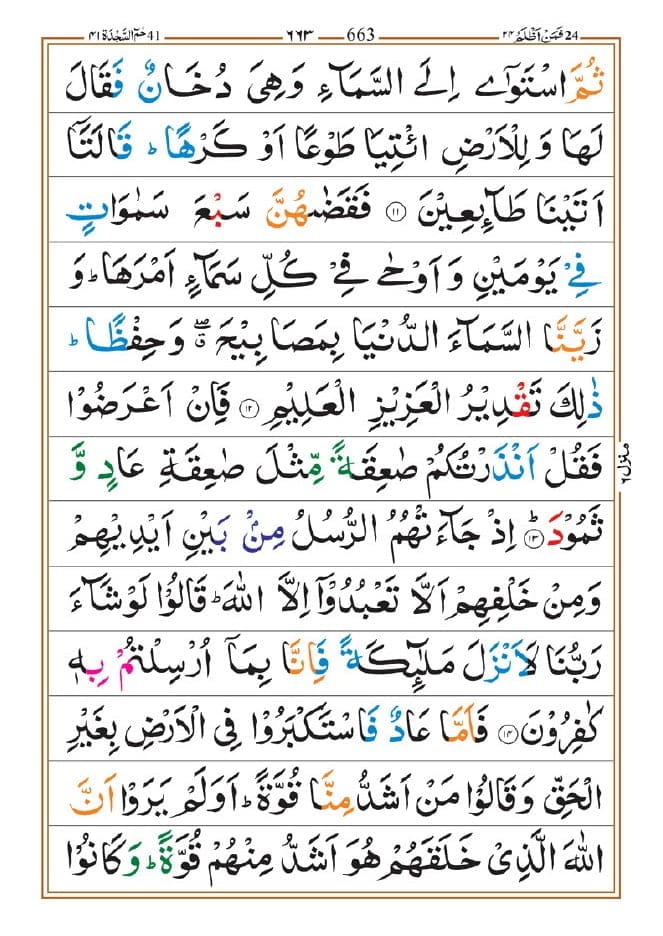 24 فَمَنْ اَظْلَمُ ٢٤ 663 ٦٦٣ 41 حٰمٓ السَّجْدَة ٤١
ثُمَّ اسْتَوٰٓى اِلَى السَّمَآءِ وَهِىَ دُخَانٌ فَقَالَ
لَهَا وَلِلْاَرْضِ ائْتِيَا طَوْعًا اَوْ كَرْهًا ؕ قَالَتَاۤ
اَتَيْنَا طَآئِعِيْنَ ۱۱ فَقَضٰىهُنَّ سَبْعَ سَمٰوَاتٍ
فِىْ يَوْمَيْنِ وَاَوْحٰى فِىْ كُلِّ سَمَآءٍ اَمْرَهَا ؕ وَ
زَيَّنَّا السَّمَآءَ الدُّنْيَا بِمَصَابِيْحَ ۖ وَحِفْظًا ؕ
ذٰلِكَ تَقْدِيْرُ الْعَزِيْزِ الْعَلِيْمِ ۱۲ فَاِنْ اَعْرَضُوْا
فَقُلْ اَنْذَرْتُكُمْ صٰعِقَةً مِّثْلَ صٰعِقَةِ عَادٍ وَّ
ثَمُوْدَ ؕ ۱۳ اِذْ جَآءَتْهُمُ الرُّسُلُ مِنْۢ بَيْنِ اَيْدِيْهِمْ
وَمِنْ خَلْفِهِمْ اَلَّا تَعْبُدُوْۤا اِلَّا اللّٰهَ ؕ قَالُوْا لَوْ شَآءَ
رَبُّنَا لَاَنْزَلَ مَلٰٓئِكَةً فَاِنَّا بِمَاۤ اُرْسِلْتُمْ بِهٖ
كٰفِرُوْنَ ۱۴ فَاَمَّا عَادٌ فَاسْتَكْبَرُوْا فِى الْاَرْضِ بِغَيْرِ
الْحَقِّ وَقَالُوْا مَنْ اَشَدُّ مِنَّا قُوَّةً ؕ اَوَلَمْ يَرَوْا اَنَّ
اللّٰهَ الَّذِىْ خَلَقَهُمْ هُوَ اَشَدُّ مِنْهُمْ قُوَّةً ؕ وَكَانُوْا
منزل ٦